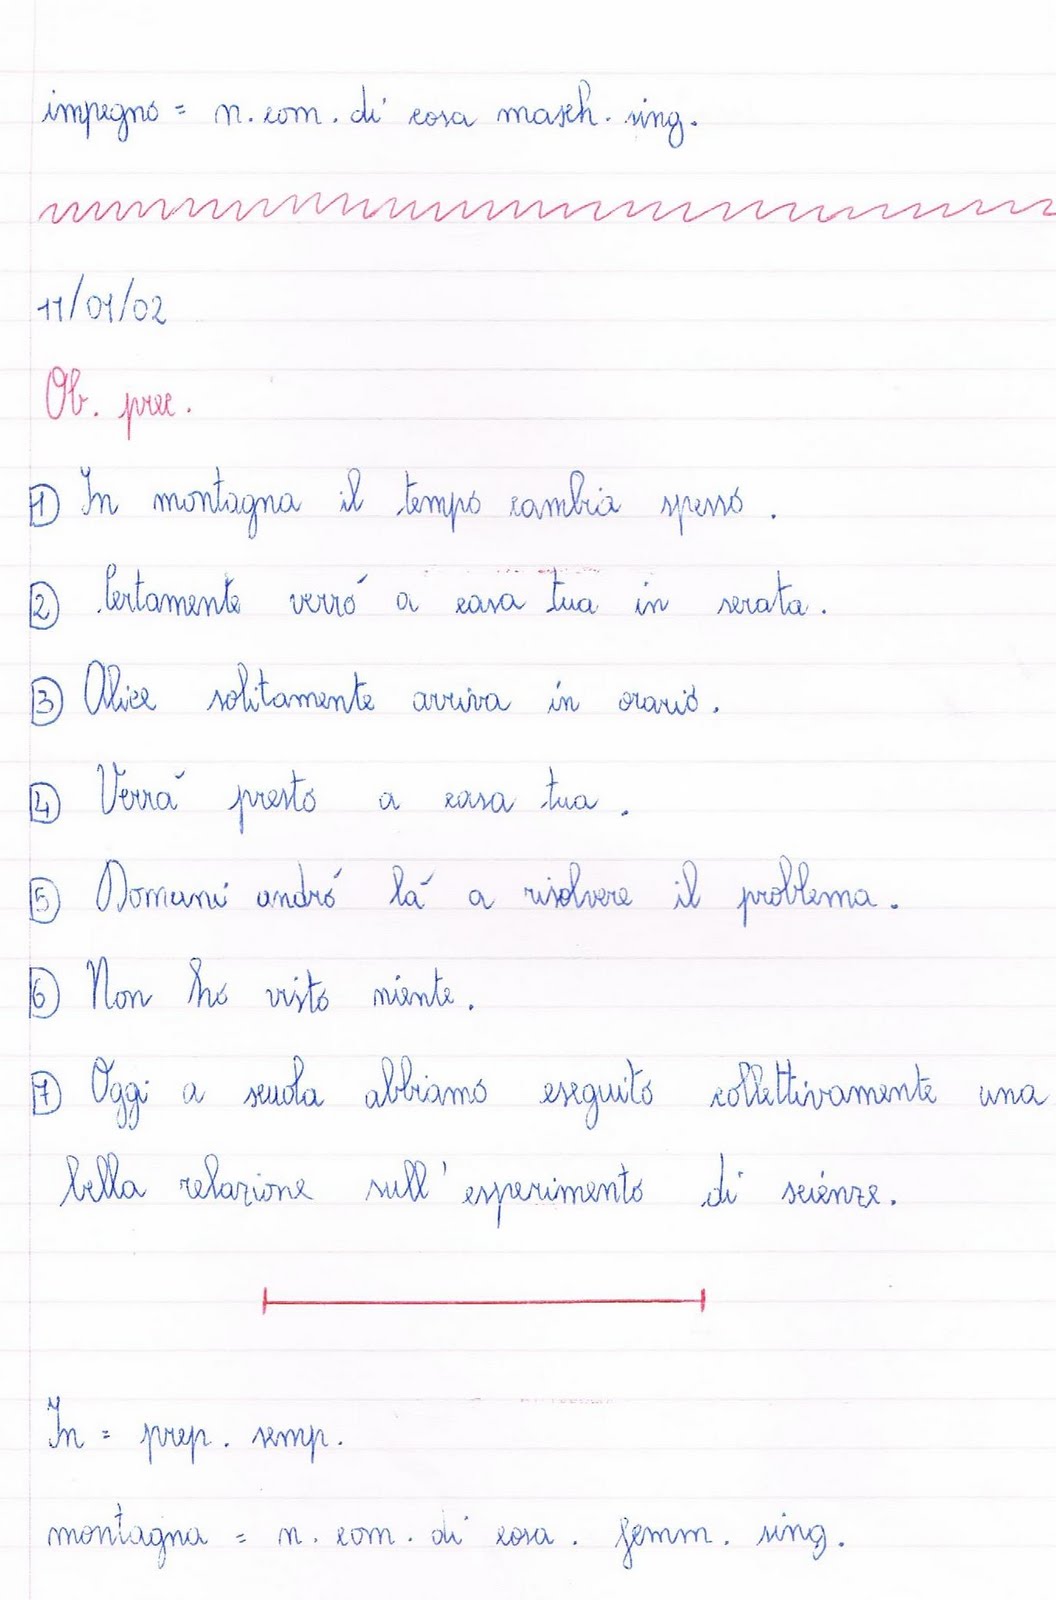 impegno = n. com. di cosa masch. sing.
11/01/02
Ob. prec.
1 In montagna il tempo cambia spesso.
2 Certamente verró a casa tua in serata.
3 Alice solitamente arriva in orario.
4 Verrá presto a casa tua.
5 Domani andró lá a risolvere il problema.
6 Non ho visto niente.
7 Oggi a scuola abbiamo eseguito collettivamente una
bella relazione sull'esperimento di scienze.
In = prep. semp.
montagna = n. com. di cosa. femm. sing.